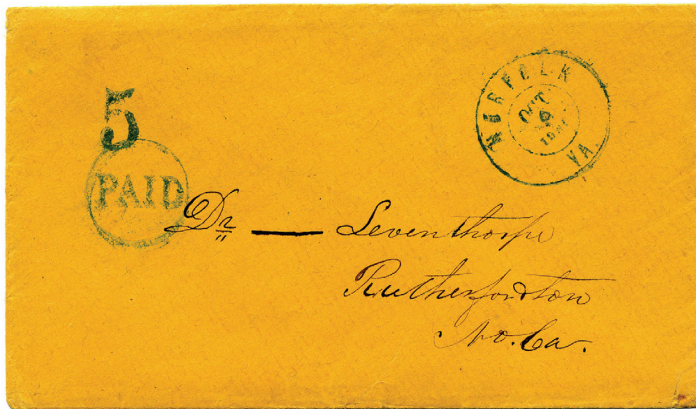 5
PAID
NORFOLK
VA.
OCT
9
Dr — Leventhorpe
Rutherfordton
No. Ca.